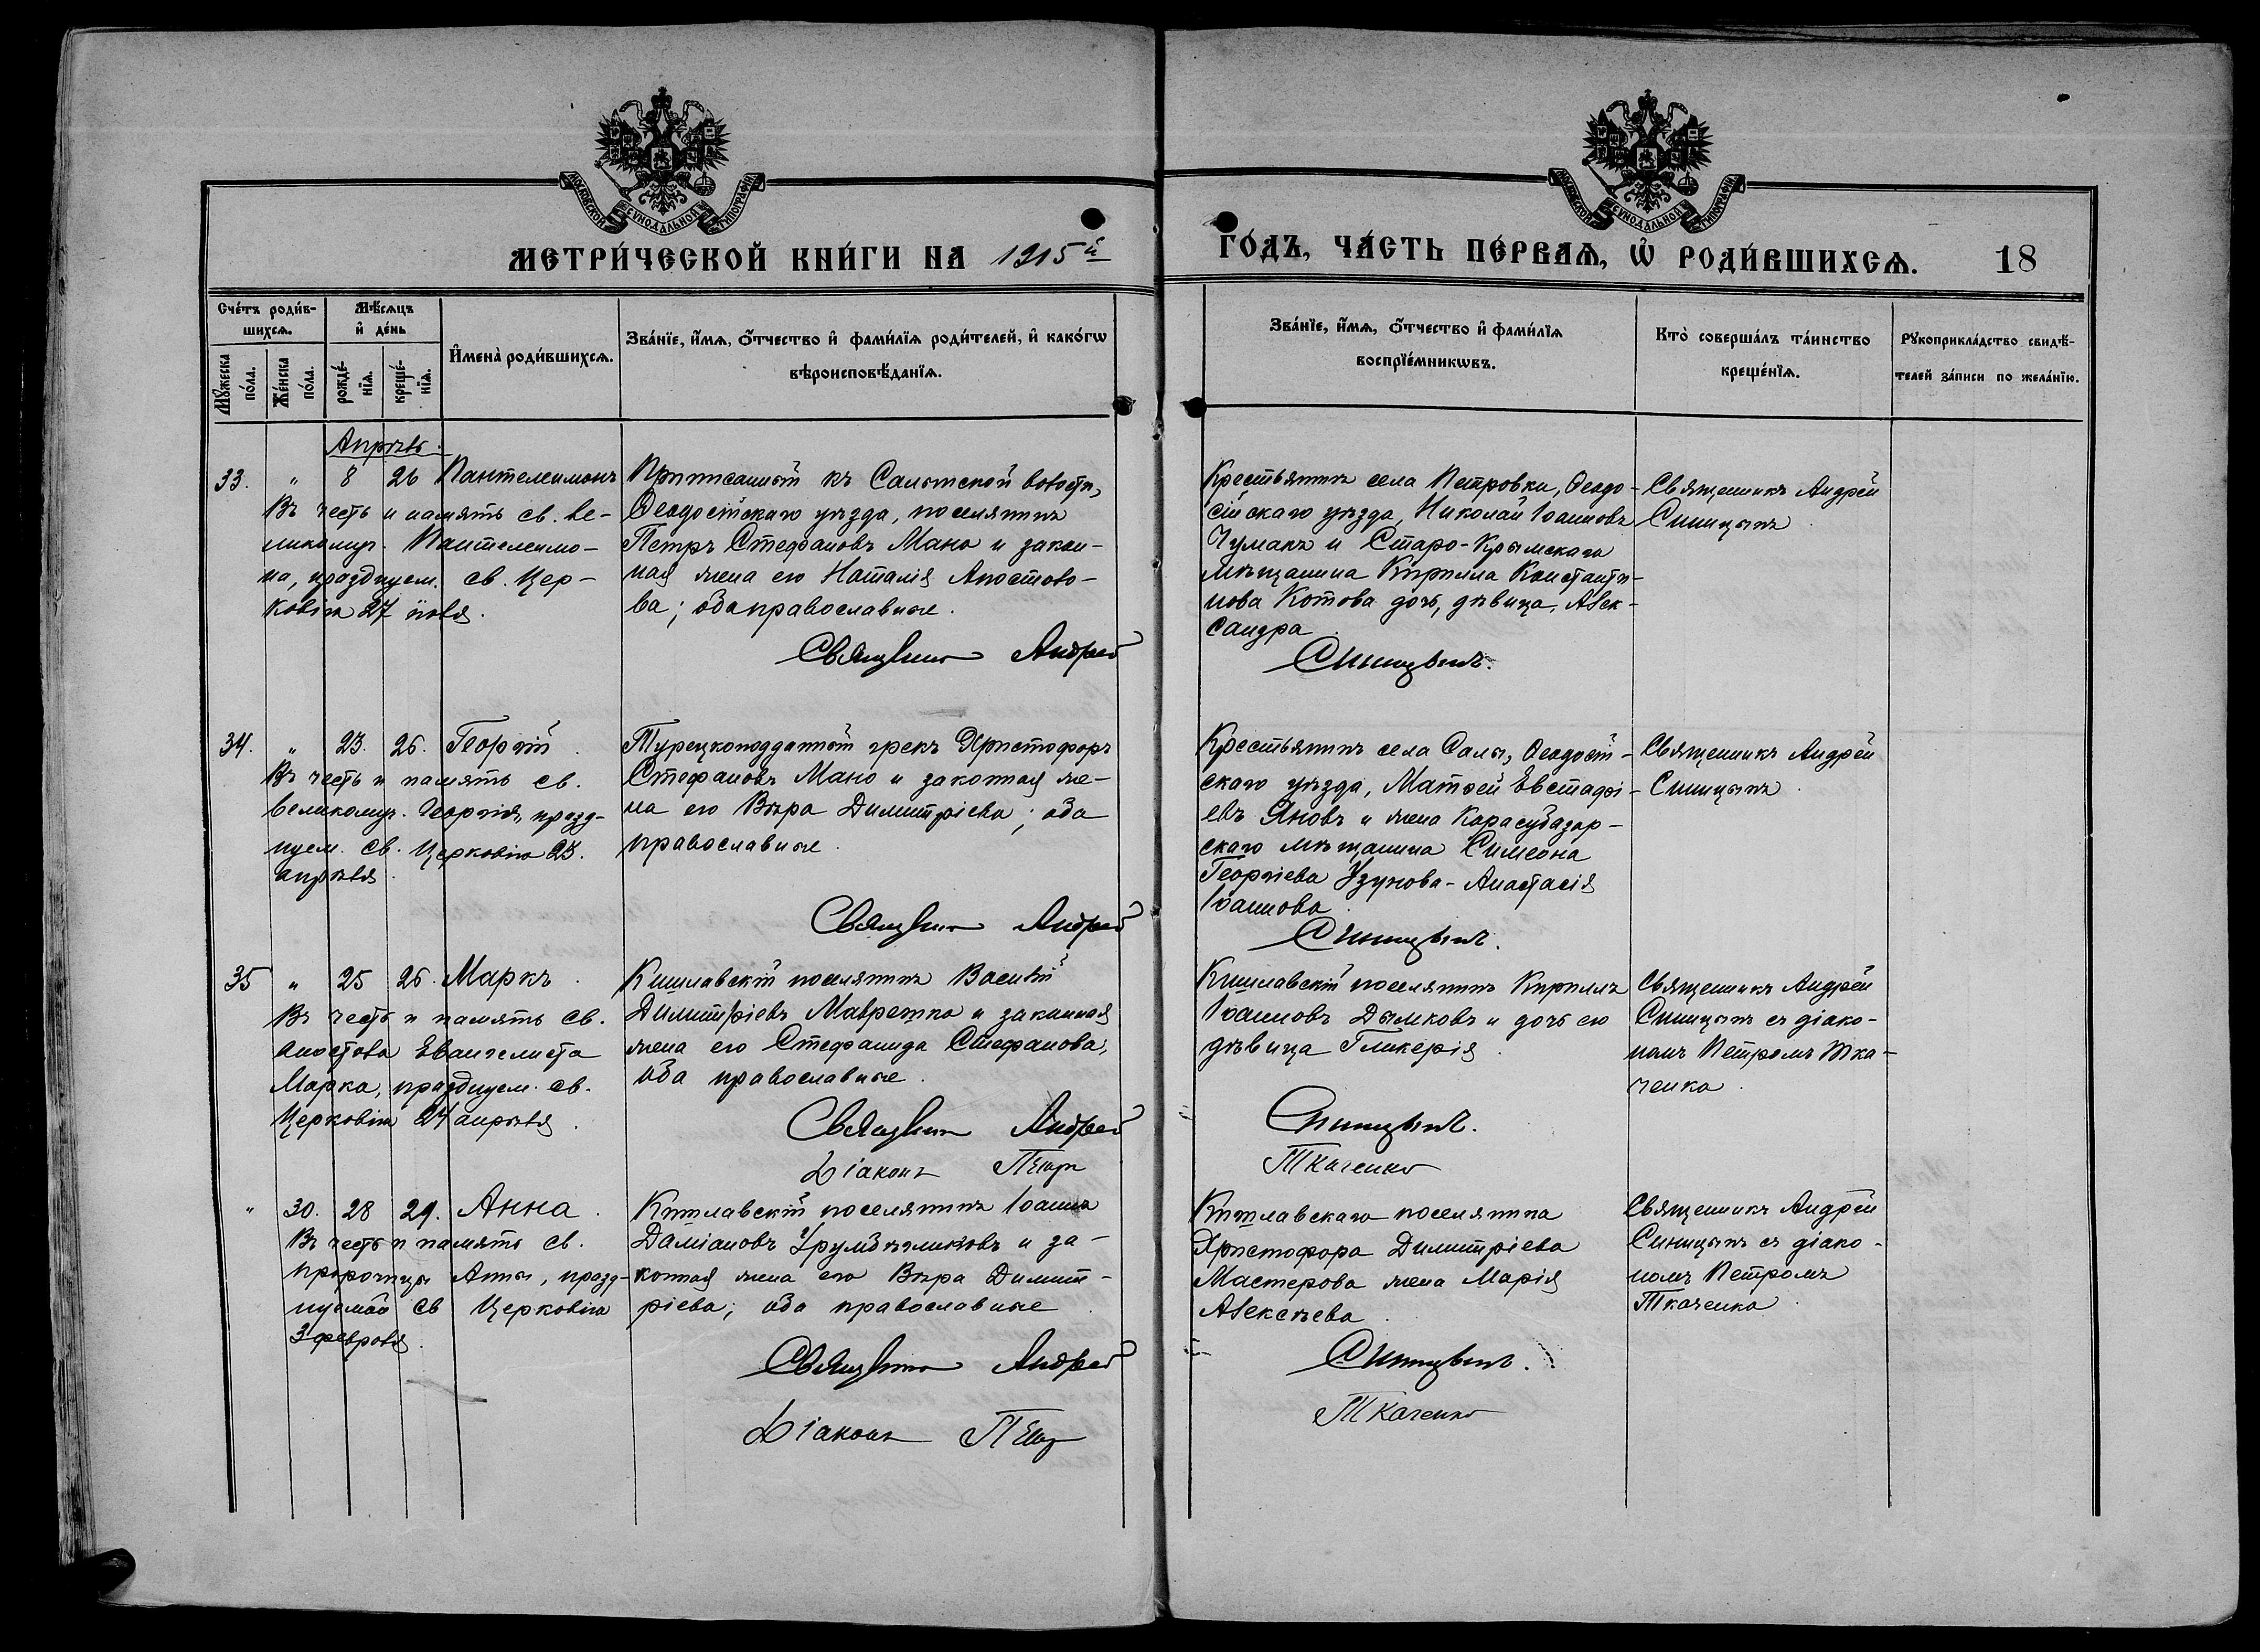 МОСКОВСКОЙ СУНОДАЛЬНОЙ ТИПОГРАФІИ
МОСКОВСКОЙ СУНОДАЛЬНОЙ ТИПОГРАФІИ
МЕТРИ́ЧЕСКОЙ КНИ́ГИ НА 1915й
ГО́ДЪ, ЧА́СТЬ ПЕ́РВАѦ, Ѡ҆ РОДИ́ВШИХСѦ. 18
Сче́тъ роди́в-
шихсѧ.
Мѣ́сѧцъ
и҆ де́нь
Мꙋ́жеска
по́ла.
Же́нска
по́ла.
рожде́-
нїѧ.
креще́-
нїѧ.
И҆мена̀ роди́вшихсѧ.
Зва́нїе, и҆́мѧ, ѻ҆́тчество и҆ фами́лїѧ роди́телей, и҆ како́гѡ
вѣроисповѣ́данїѧ.
Зва́нїе, и҆́мѧ, ѻ҆́тчество и҆ фами́лїѧ
воспрїе́мникѡвъ.
Кто̀ соверша́лъ та́инство
креще́нїѧ.
Рꙋкоприкла́дство свидѣ́-
телей за́писи по жела́нїю.
Апрѣль.
33. " 8 26 Пантелеимонъ
Въ честь и память св. ве-
ликомуч. Пантелеимо-
на, празднуем. св. Цер-
ковію 27 іюля.
Приписанный къ Салынской волости,
Ѳеодосійскаго уѣзда, поселянинъ
Петръ Стефановъ Мано и закон-
ная жена его Наталія Апостоло-
ва; оба православные.
Священникъ Андрей
Крестьянинъ села Петровки, Ѳеодо-
сійскаго уѣзда, Николай Іоанновъ
Чумакъ и Старо-Крымскаго
мѣщанина Кирилла Константи-
нова Котова дочь, дѣвица, Алек-
сандра.
Синицынъ.
Священникъ Андрей
Синицынъ.
34. " 23. 26. Георгій.
Въ честь и память св.
великомуч. Георгія, празд-
нуем. св. Церковію 23.
апрѣля.
Турецкоподданный грекъ Христофоръ
Стефановъ Мано и законная же-
на его Вѣра Димитріева; оба
православные.
Священникъ Андрей
Крестьянинъ села Салы, Ѳеодосій-
скаго уѣзда, Матѳей Евстафі-
евъ Яновъ и жена Карасубазар-
скаго мѣщанина Симеона
Георгіева Узунова - Анастасія
Іоаннова.
Синицынъ.
Священникъ Андрей
Синицынъ.
35 " 25 26. Маркъ.
Въ честь и память св.
апостола Евангелиста
Марка, празднуем. св.
Церковію 24 апрѣля.
Кишлавскій поселянинъ Василій
Димитріевъ Мавренко и законная
жена его Стефанида Стефанова,
оба православные.
Священникъ Андрей
Діаконъ Петръ
Кишлавскій поселянинъ Кириллъ
Іоанновъ Дымковъ и дочь его
дѣвица Гликерія.
Синицынъ.
Ткаченко
Священникъ Андрей
Синицынъ съ діако-
номъ Петромъ Тка-
ченко.
" 30. 28 29. Анна.
Въ честь и память св.
пророчицы Анны, празд-
нуемой св. Церковію
3 февраля.
Кишлавскій поселянинъ Іоаннъ
Даміановъ и за-
конная жена его Вѣра Димит-
ріева; оба православные.
Священникъ Андрей
Діаконъ Петръ
Кишлавскаго поселянина
Христофора Димитріева
Мастерова жена Марія
Алексѣева.
Синицынъ.
Ткаченко
Священникъ Андрей
Синицынъ съ діако-
номъ Петромъ
Ткаченко.